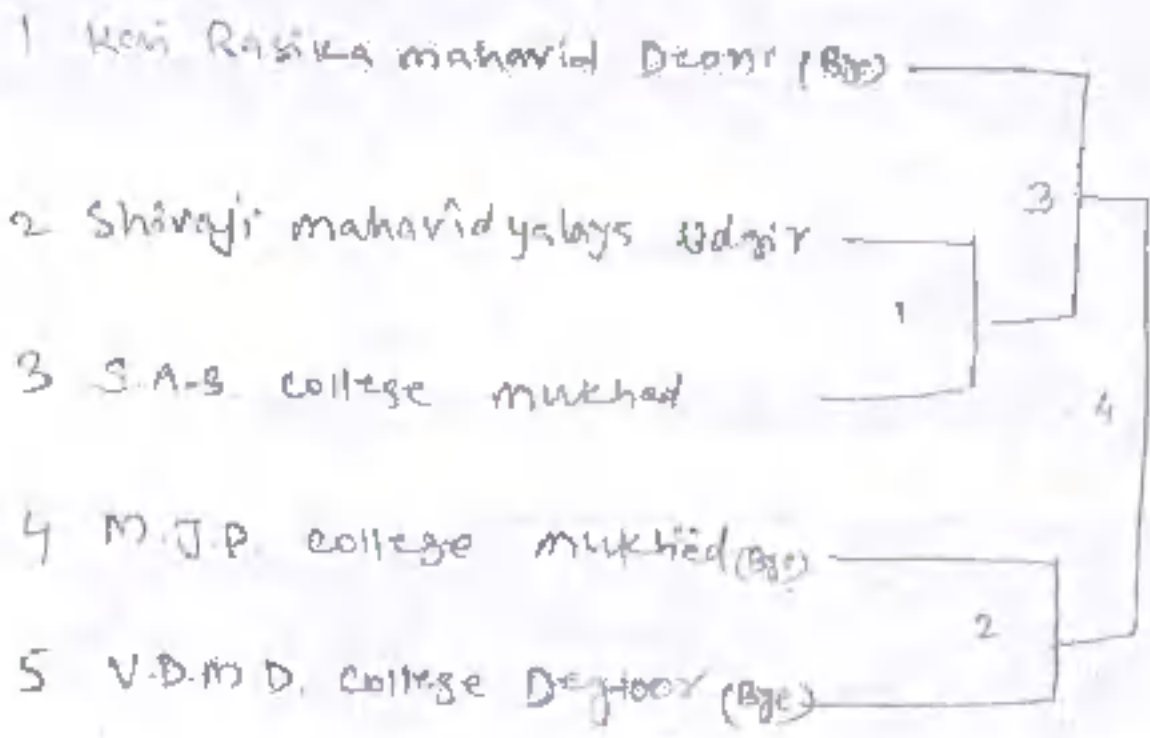 1 Kai Rasika mahavid Deoni (Bye)
3
2 Shivaji mahavidyalays Udgir
1
3 S.A.B. college mukhad
4
4 M.J.P. college mukhed (Bye)
2
5 V.D.M D. college Degloor (Bye)